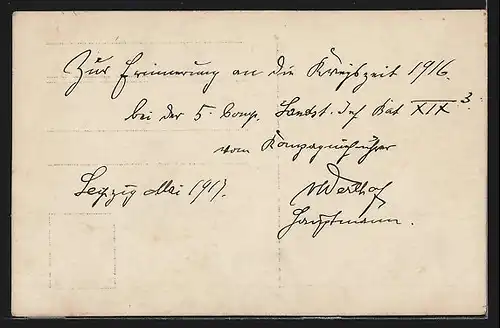 Zur Erinnerung an die Kriegszeit 1916.
bei der 5. Comp. Landst. Inf Bat XIX 3.
vom Kompagnieführer
Leipzig Mai 1917.
Hauptmann.